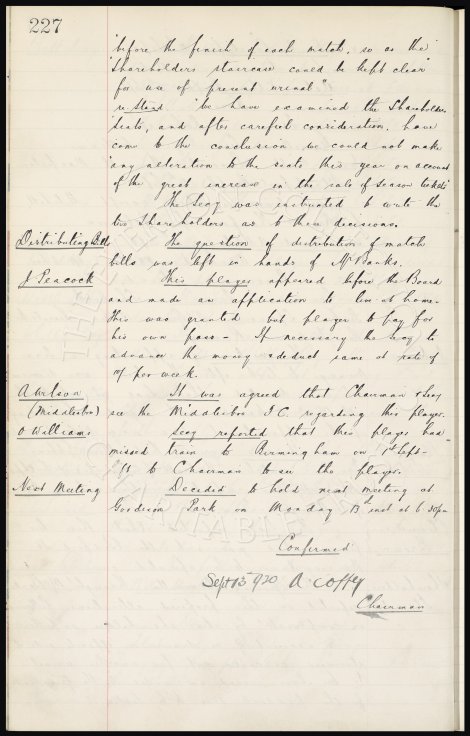 227
"before the finish of each match, so as the
"Shareholders staircase could be kept clear"
for use of present urinal"
re Stand "We have examined the Shareholders
"seats, and after careful consideration, have
come to the conclusion we could not make
"any alteration to the seats this year on account
"of the great increase in the sale of season tickets"
The Secy was instructed to write the
two Shareholders as to these decisions.
Distributing Bills The question of distribution of match
bills was left in hands of Mr Banks.
J Peacock This player appeared before the Board
and made an application to live at home.
This was granted but player to pay for
his own pass - If necessary the Secy to
advance the money & deduct same at rate of
per week.
A Wilson It was agreed that Chairman & Secy
(Middlesbro) see the Middlesbro F.C. regarding this player.
O Williams Secy reported that this player had
missed train to Birmingham on 1st Sept-
left to Chairman to see the player.
Next Meeting Decided to hold next meeting at
Goodison Park on Monday 13th inst at 6.30pm
Confirmed
Sept 13th 1920 A. Coffey
Chairman